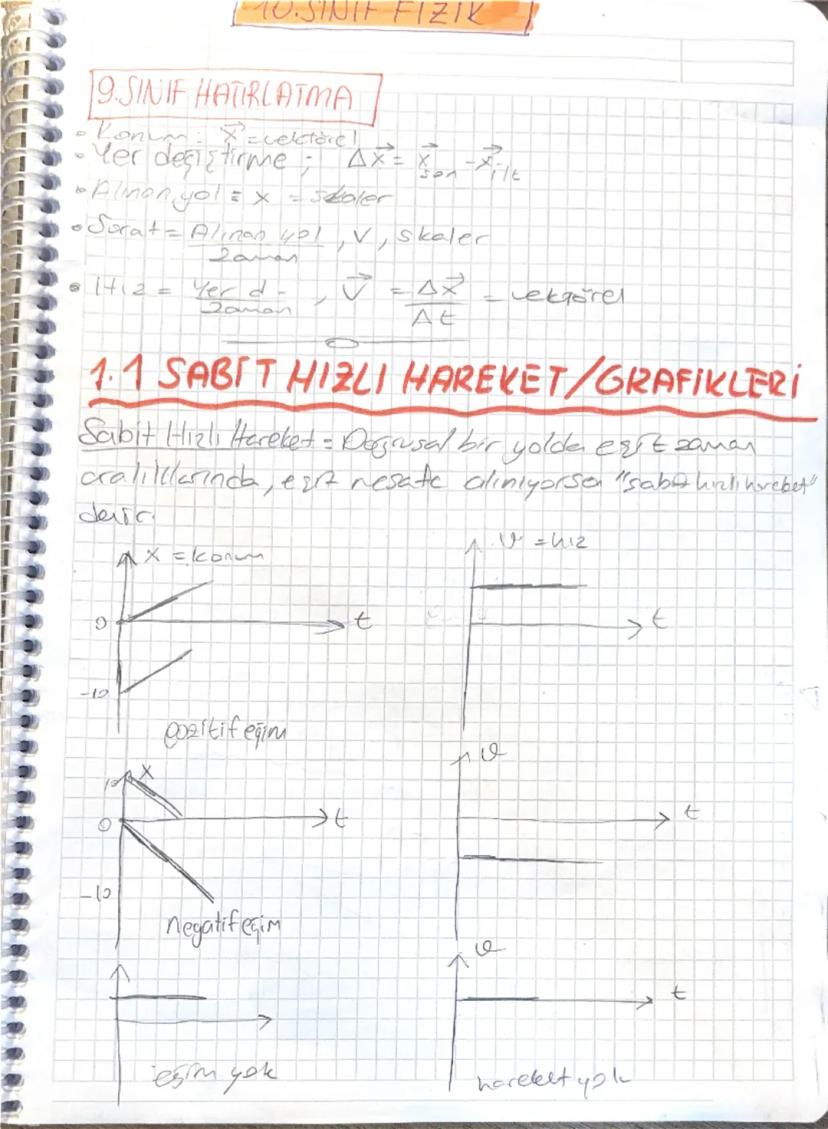 10.SINIF FİZİK
9.SINIF HATIRLATMA
• Konum: x⃗ = vektörel
• Yer değiştirme; Δx⃗ = x⃗son - x⃗ilk
• Alınan yol = x = skaler
• Sürat = Alınan yol / Zaman, V, skaler
• Hız = Yer d- / Zaman, V⃗ = Δx⃗ / Δt = vektörel
1.1 SABİT HIZLI HAREKET/GRAFİKLERİ
Sabit Hızlı Hareket = Doğrusal bir yolda eşit zaman
aralıklarında, eşit mesafe alınıyorsa "sabit hızlı hareket"
denir.
X = konum
0
t
-10
pozitif eğim
V = hız
t
10
x
0
t
-10
negatif eğim
V
t
eğim yok
V
t
hareket yok